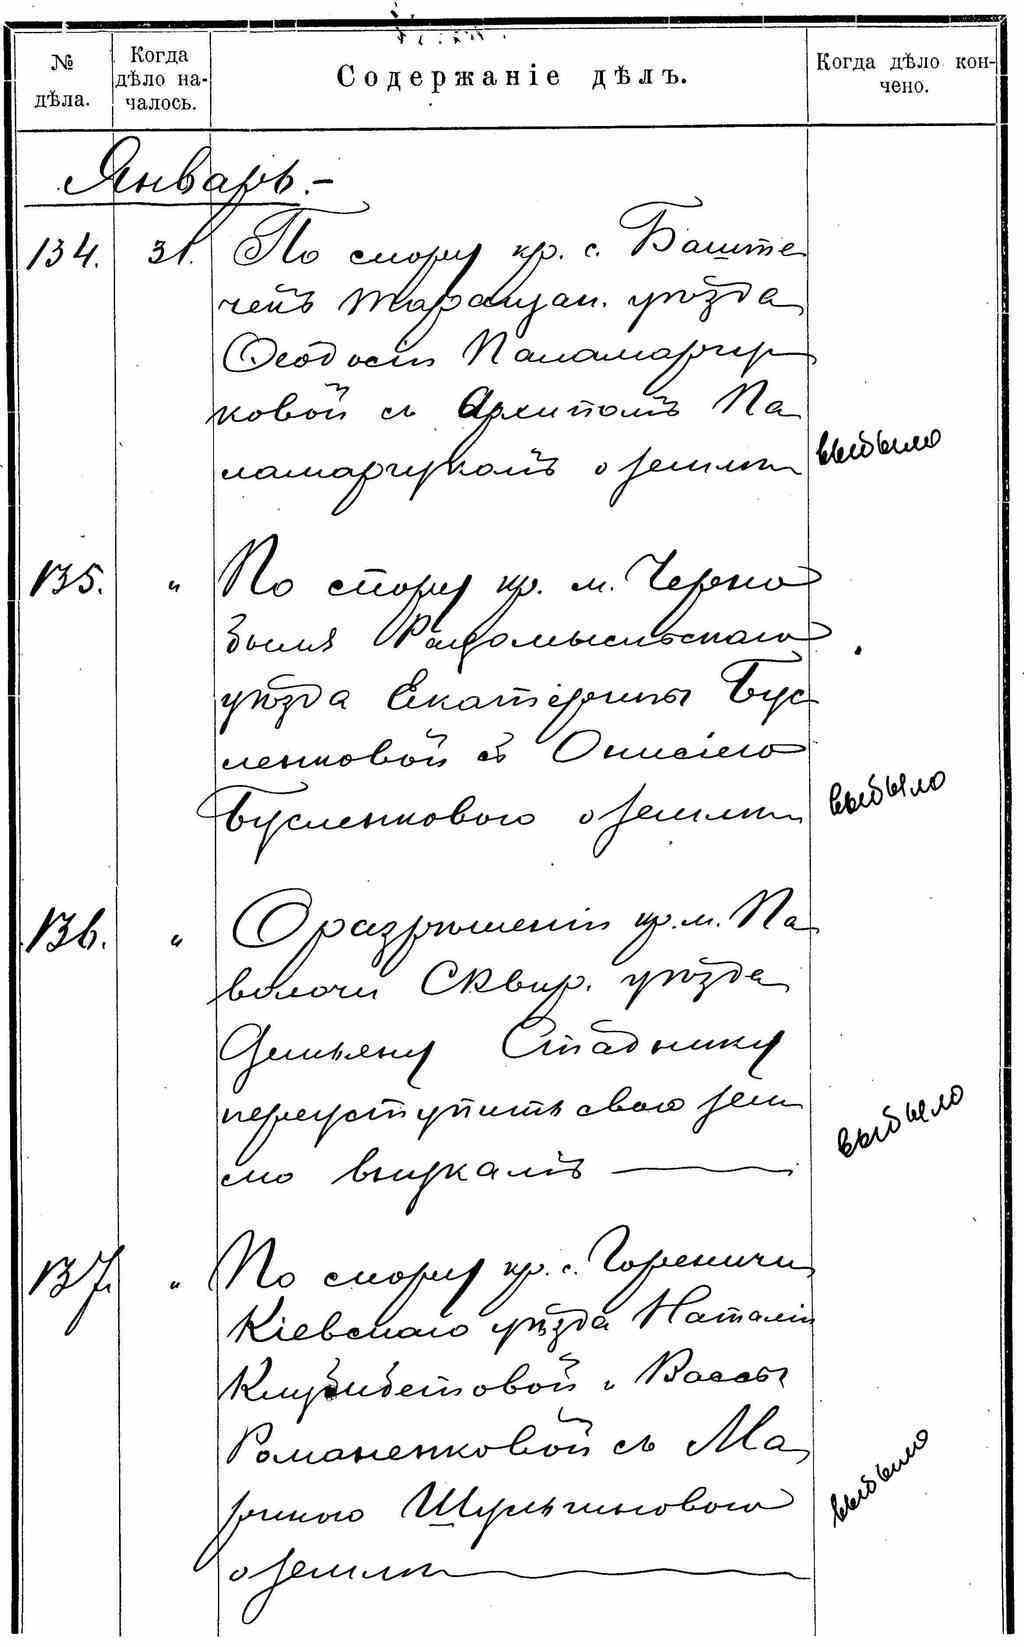 № дѣла.
Когда дѣло на-чалось.
Содержаніе дѣлъ.
Когда дѣло кон-чено.
Январь.-
134. 31. По спору кр. с. Баште
чекъ Таращан. уѣзда
Ѳеодосіи Паламарчу
ковой съ Архипомъ Па
ламарчукомъ о землѣ
выбыло
135. " По спору кр. м. Черно
быля Радомысльскаго
уѣзда Екатерины Бус
ленковой съ Онисіею
Бусленковою о землѣ
выбыло
136. " О разрѣшеніи кр. м. Па
волочи Сквир. уѣзда
Демьяну Стаднику
переуступить свою зем
лю внукамъ
выбыло
137. " По спору кр. с. Гореничи
Кіевскаго уѣзда Наталіи
и Вассы
Романенковой съ Ма
ріею Шульгиновою
о землѣ
выбыло